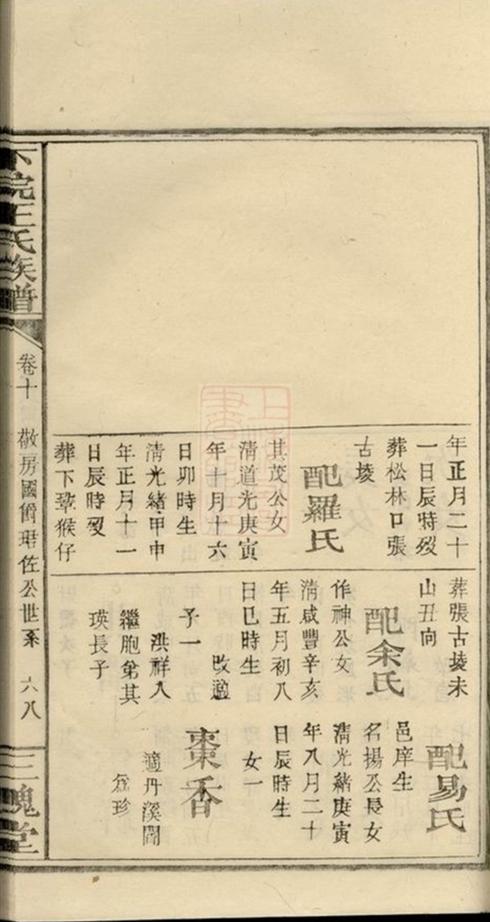 年正月二十
一日辰時殁
葬松林口張
古堎
配羅氏
其茂公女
清道光庚寅
年十月十六
日卯時生
清光緒甲申
年正月十一
日辰時殁
葬下章猴仔
葬張古堎未
山丑向
配余氏
作神公女
清咸豐辛亥
年五月初八
日巳時生
改適
子一
洪祥入
繼胞弟其
瑛長子
配易氏
邑庠生
名揚公長女
清光緒庚寅
年八月二十
日辰時生
女一
棗香
適丹溪
珍
下院王氏族譜
卷十
敬房國爵珺佐公世系
六八
三槐堂